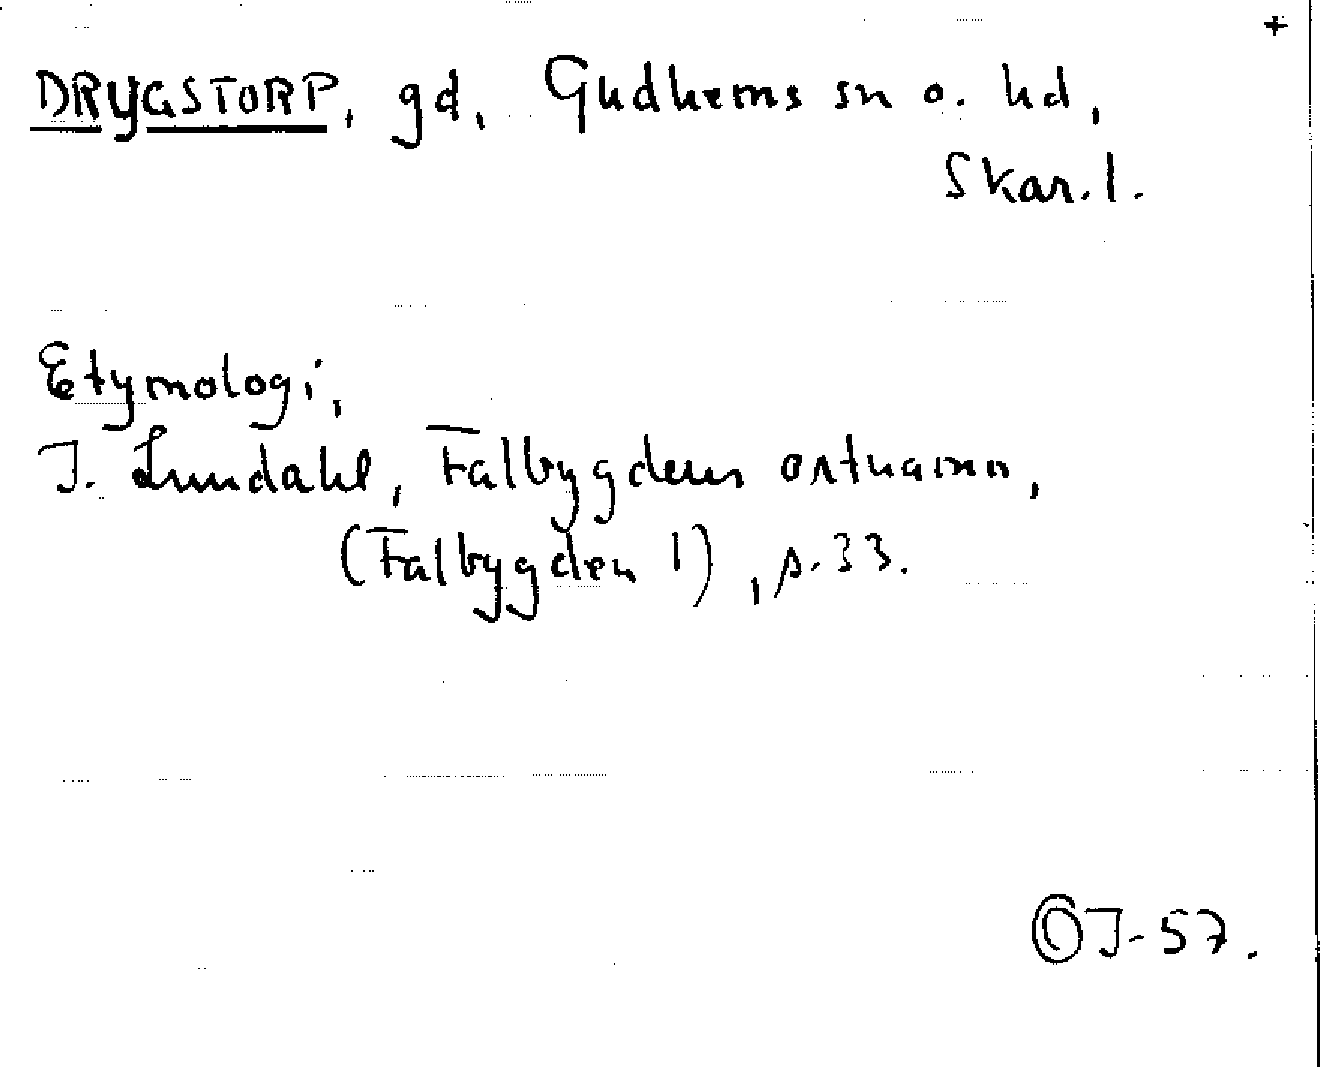 +
DRYGSTORP, gd, Gudhems sn o. hd,
Skar. l.
Etymologi,
I. Lundahl, Falbygdens ortnamn,
(Falbygden 1), s. 33.
J-57.